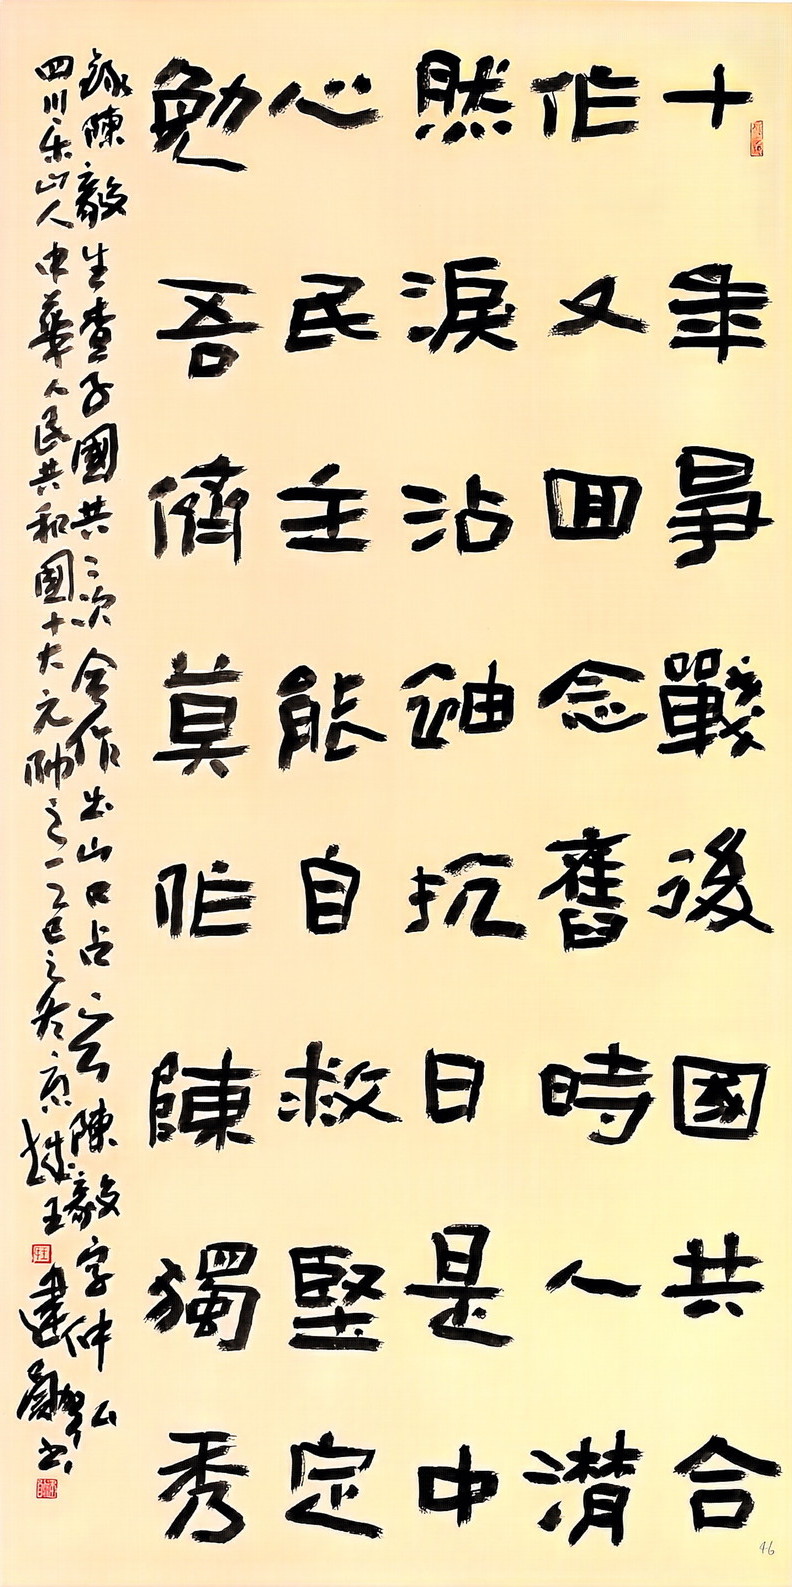 十年爭戰後國共合
作又回念舊時人潸
然淚沾䄂抗日是中
心民主能自救堅定
勉吾儕莫作陳獨秀
錄陳毅生查子國共二次合作出山口占之一陳毅字仲弘
四川乐山人中華人民共和國十大元帥之一乙巳之冬京
王建
46